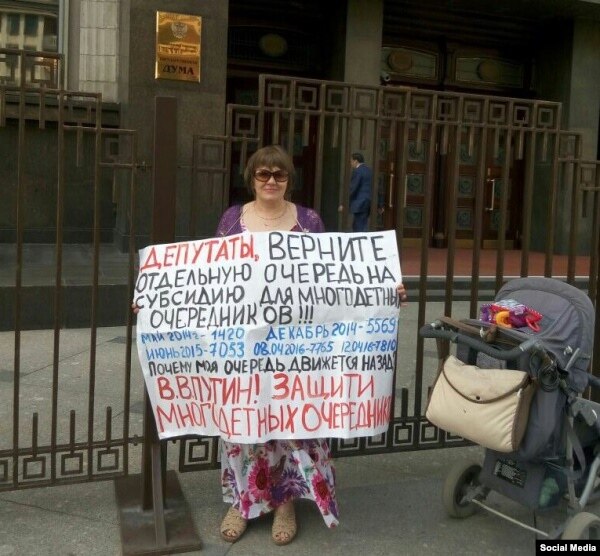 ГОСУДАРСТВЕННАЯ
ДУМА
ДЕПУТАТЫ, ВЕРНИТЕ
ОТДЕЛЬНУЮ ОЧЕРЕДЬ НА
СУБСИДИЮ ДЛЯ МНОГОДЕТНЫ
ОЧЕРЕДНИКОВ!!!
МАЙ 2014г-1420 ДЕКАБРЬ 2014-5569
ИЮНЬ 2015-7053 08.04.2016-7765 12.04.16-7810
ПОЧЕМУ МОЯ ОЧЕРЕДЬ ДВИЖЕТСЯ НАЗАД
В.В.ПУТИН! ЗАЩИТИ
МНОГОДЕТНЫХ ОЧЕРЕДНИК
Social Media